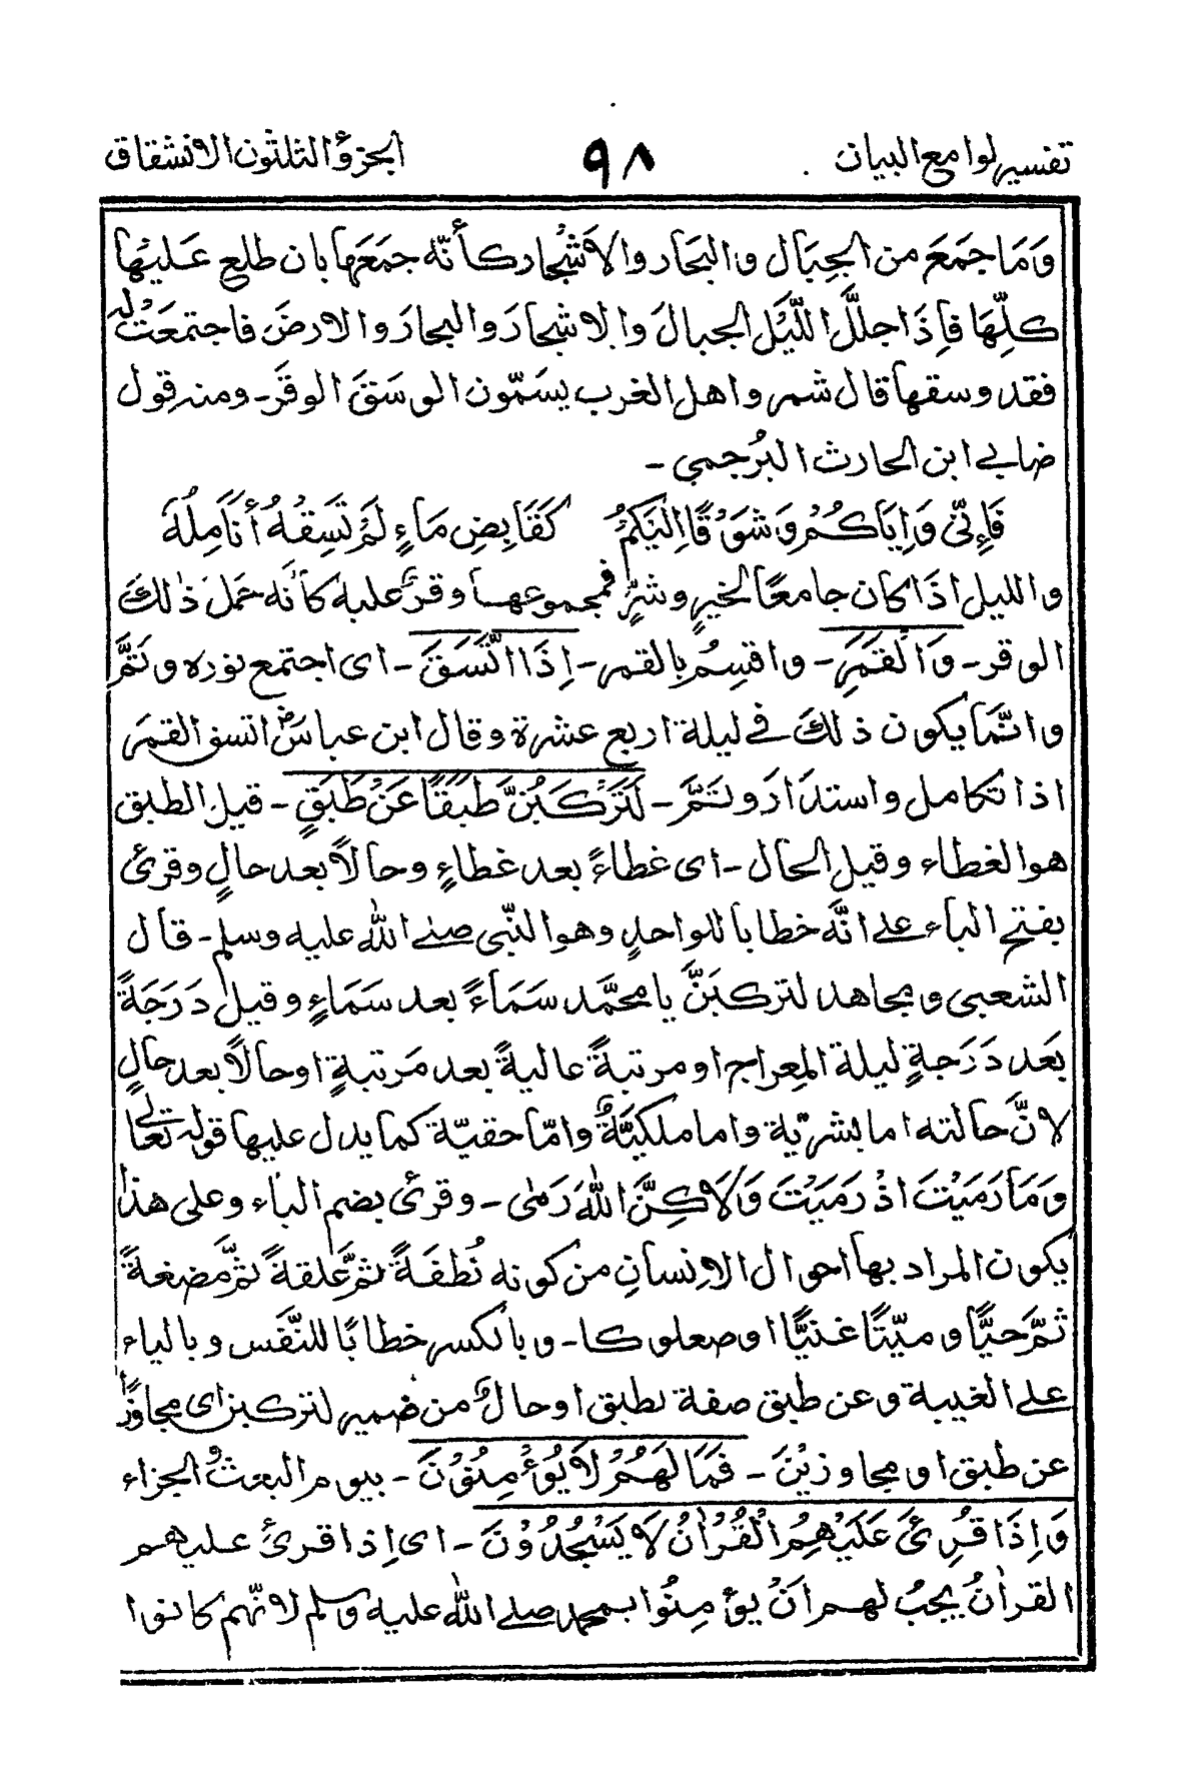 تفسير لوامع البيان ٩٨ الجزؤ الثلثون الانشقاق
وَمَا جَمَعَ من الجِبَال والبحَار والاَشْجَار كأنّه جمَعَها بان طلع عَليْها
كلِّهَا فاِذَا جللَّ اللَّيْل الجبالَ والاشجارَ والبحارَ والارضَ فاجتمعَتْ لَه
فقد وسقها قال شمر واهل الغرب يسَمّون الوسَقَ الوقَر۔ ومنه قول
ضابى ابن الحارث البُرجمي۔
فَاِنّى وَاِيَاكُمْ وَشَوْقًا اِلَيْكمُ كَقَابِضِ مَاءٍ لَمْ تَسِقْهُ أنَامِلُهٗ
والليل اذَا كان جامعًا لخيرٍ وشرٍّ فمجموعها وقرٌ عليه كأنّه حَمَلَ ذٰلكَ
الوقر۔ وَالْقمَرِ۔ واقسِمُ بِالقمر۔ اِذَا اتَّسَقَ۔ اى اجتمع نوره وتَمَّ
وانّمَا يكون ذلكَ فى ليلة اربع عشرة وقال ابن عباسؓ اتسق القمَر
اذا تكامل واستدَار وتَمَّ۔ لَتَرْكَبُنَّ طَبَقًا عَنْ طَبَقٍ۔ قيل الطبق
هو الغطاء وقيل الحال۔ اى غطاءً بعد غطاءٍ وحالاً بعد حالٍ وقرئ
بفتح الباء على انَّه خطابا للواحدٍ وهو النّبى صلى الله عليه وسلم۔ قال
الشعبى ومجاهد لتركبَنَّ يا محمَّد سَمَاءً بعد سَمَاءٍ وقيل دَرَجَةً
بَعد دَرَجةٍ ليلة المِعراج او مرتبةً عاليةً بعد مَرتبةٍ او حالاً بعد حالٍ
لانَّ حالته اما بشريّة واما ملكيَّةٌ وامّا حقيّة كما يدل عليها قوله تعالى
وَمَا رَمَيْتَ اذْ رَمَيْتَ وَلاَكِنَّ اللّٰهَ رَمٰى۔ وقرئ بضم الباء وعلى هذا
يكون المراد بها احوال الاِنسانِ من كونه نُطفَةً ثمَّ عَلقةً ثمَّ مَضغةً
ثمَّ حيًّا وميّتًا غنيًّا او صعلوكا۔ وبالكسر خطابًا للنَّفَس وبالياء
على الغيبة وعن طبق صفة لطبق او حالٌ من ضمير لتركبن اى مجاوزًا
عن طبق او مجاوزيْنَ۔ فَمَا لَهُمْ لاَ يُوْءمِنُوْنَ۔ بيوم البعث والجزاء
وَاِذَا قُرِئَ عَلَيْهِمُ الْقُرْاٰنُ لاَ يَسْجُدُوْنَ۔ اى اِذا قرئَ عليهم
القراٰنُ يجبُ لهم اَنْ يؤمِنُوا بمحمد صلى الله عليه وسلم لانّهم كانوا